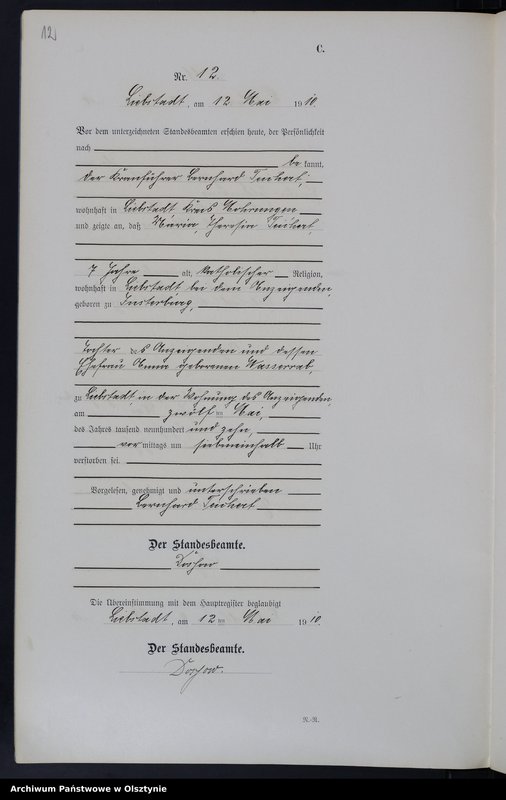 12
C.
Nr. 12
Liebstadt, am 12 Mai 1910.
Vor dem unterzeichneten Standesbeamten erschien heute, der Persönlichkeit
nach
be kannt,
der Bernhard
wohnhaft in Liebstadt Kreis Mohrungen
und zeigte an, daß Maria, Theresia
7 Jahre alt, katholischer Religion,
wohnhaft in Liebstadt bei dem Anzeigenden,
geboren zu Insterburg,
Tochter des Anzeigenden und dessen
Ehefrau Anna geborenen
zu Liebstadt, in der Wohnung des Anzeigenden
am zwölften Mai,
des Jahres tausend neunhundert und zehn,
vor mittags um siebeneinhalb Uhr
verstorben sei.
Vorgelesen, genehmigt und unterschrieben
Bernhard
Der Standesbeamte.
Die Übereinstimmung mit dem Hauptregister beglaubigt
Liebstadt, am 12 ten Mai 1910.
Der Standesbeamte.
R.-R.
Archiwum Państwowe w Olsztynie